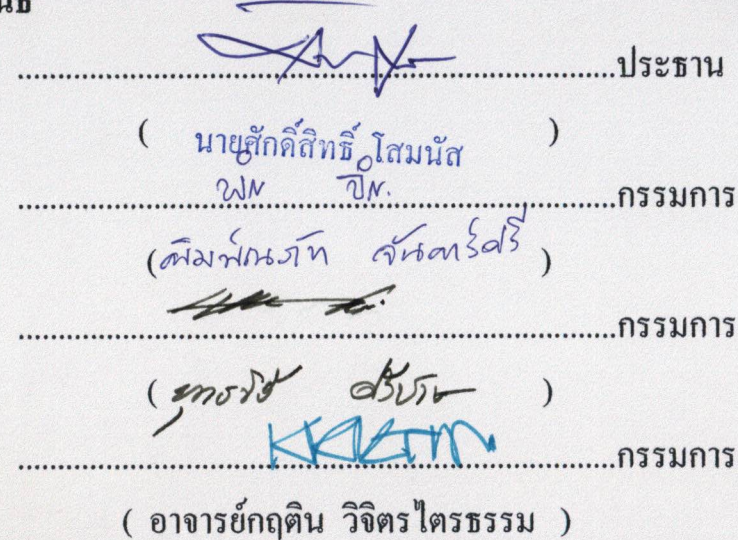 นธ์
ประธาน
( นายศักดิ์สิทธิ์ โสมนัส )
กรรมการ
(พิมพ์ณภัท จันทร์ศรี)
กรรมการ
( )
กรรมการ
( อาจารย์กฤติน วิจิตรไตรธรรม )